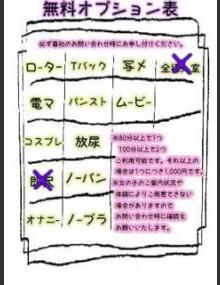 無料オプション表
必ず最初のお問い合わせ時にお申し付けください。
ローター Tバック 写メ 全
電マ パンスト ムービー
コスプレ 放尿
ノーパン
オナニー ノーブラ
※80分以上で1つ
100分以上で2つ
ご利用可能です。それ以上の
場合は1つにつき1,000円です。
※女の子のご案内状況や
体調によりご用意できない
場合がありますので
お問い合わせ時に確認を
お願いいたします。